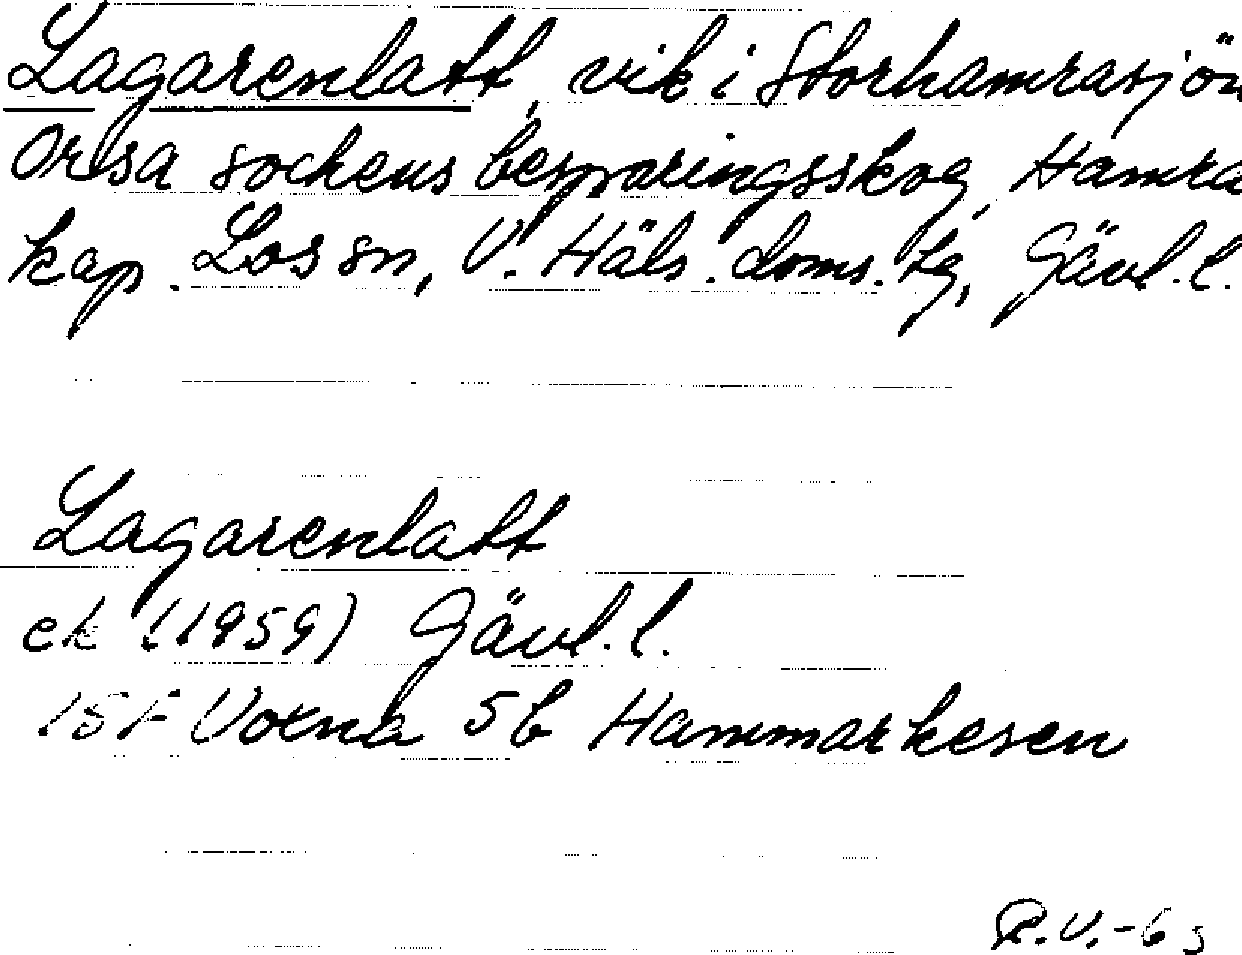 Lagarenlatt, vik i Storhamrasjön
Orsa sockens besparingsskog, Hamra
kap. Los sn, V. Häls. doms. tg, Gävl. l.
Lagarenlatt
ek (1959) Gävl. l.
15F Voxna 5b Hammarkesen
R.V.-63